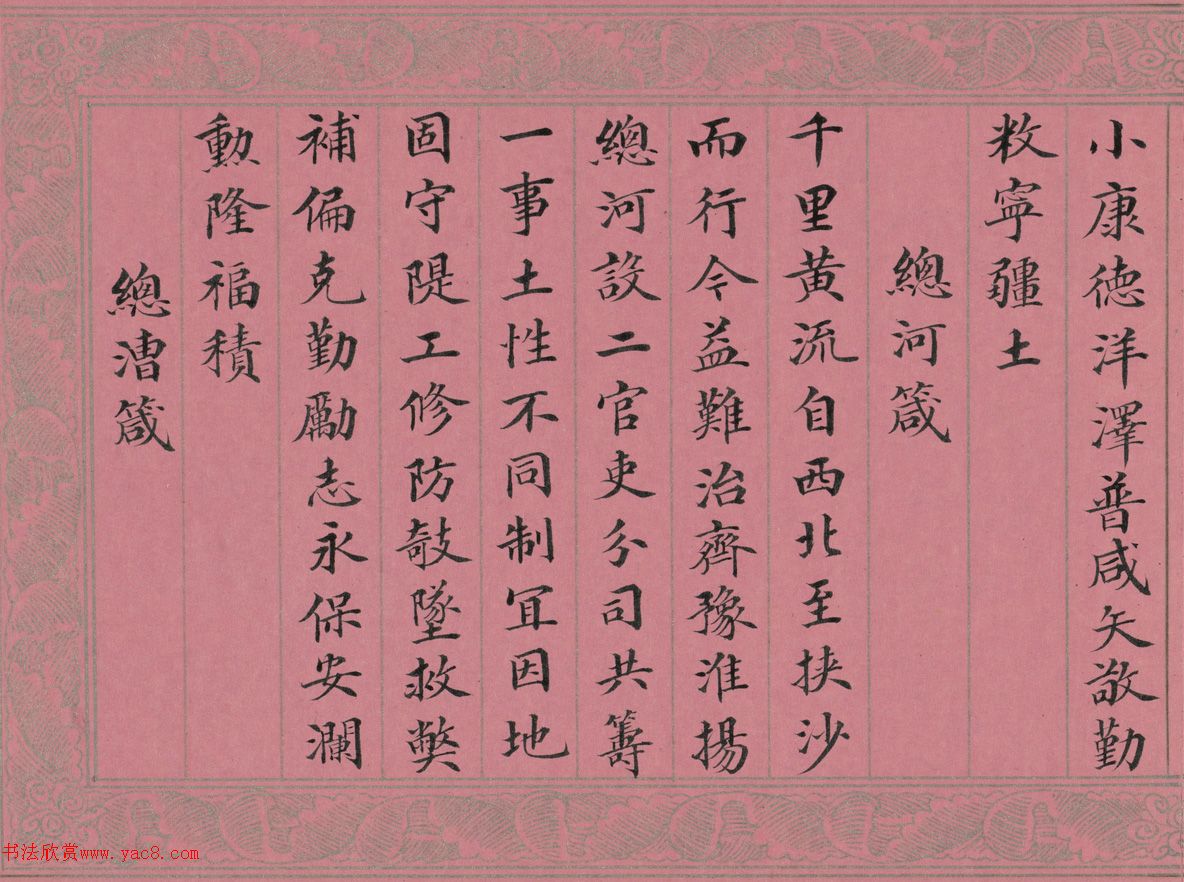 小康德洋澤普咸矢敬勤
敉寧疆土
總河箴
千里黃流自西北至挟沙
而行令益難治齊豫淮揚
總河設二官吏分司共籌
一事土性不同制宜因地
固守隄工修防攲墜救獘
補偏克勤勵志永保安瀾
勲隆福積
總漕箴
书法欣赏www.yac8.com